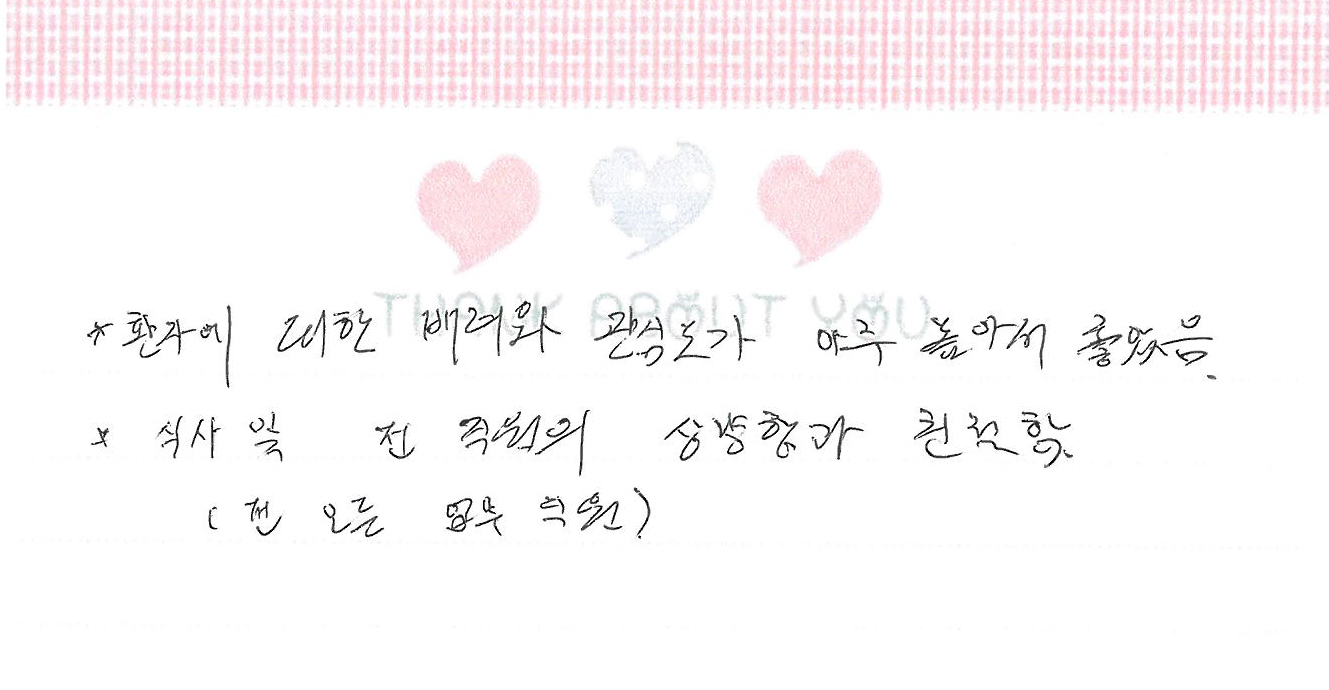 THANK ABOUT YOU
* 환자에 대한 배려와 관심도가 아주 높아서 좋았음.
* 식사 및 전 직원의 상냥함과 친절함.
( 전 모든 직원 )